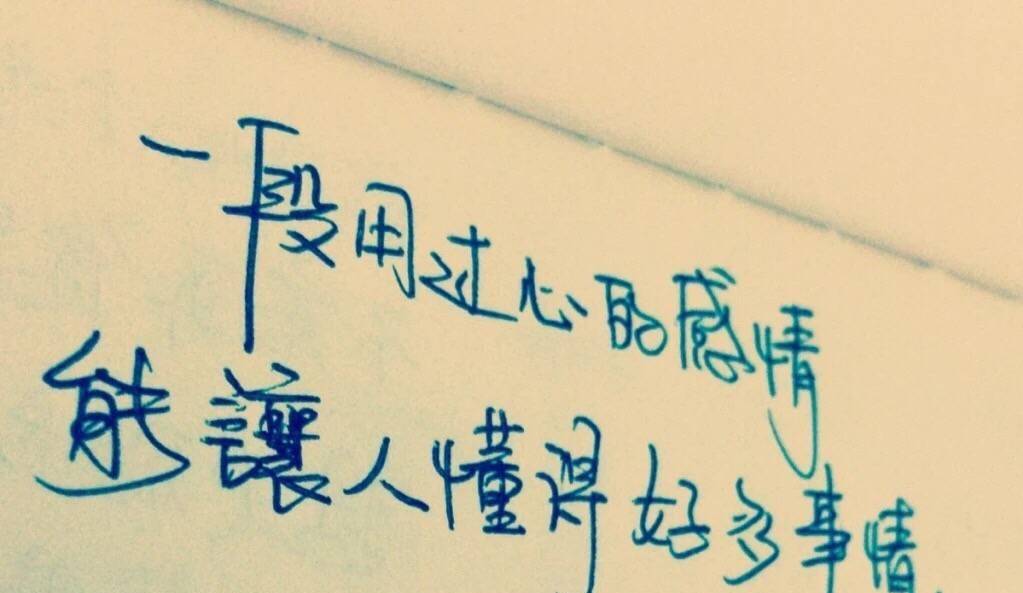 一段用过心的感情
能讓人懂得好多事情